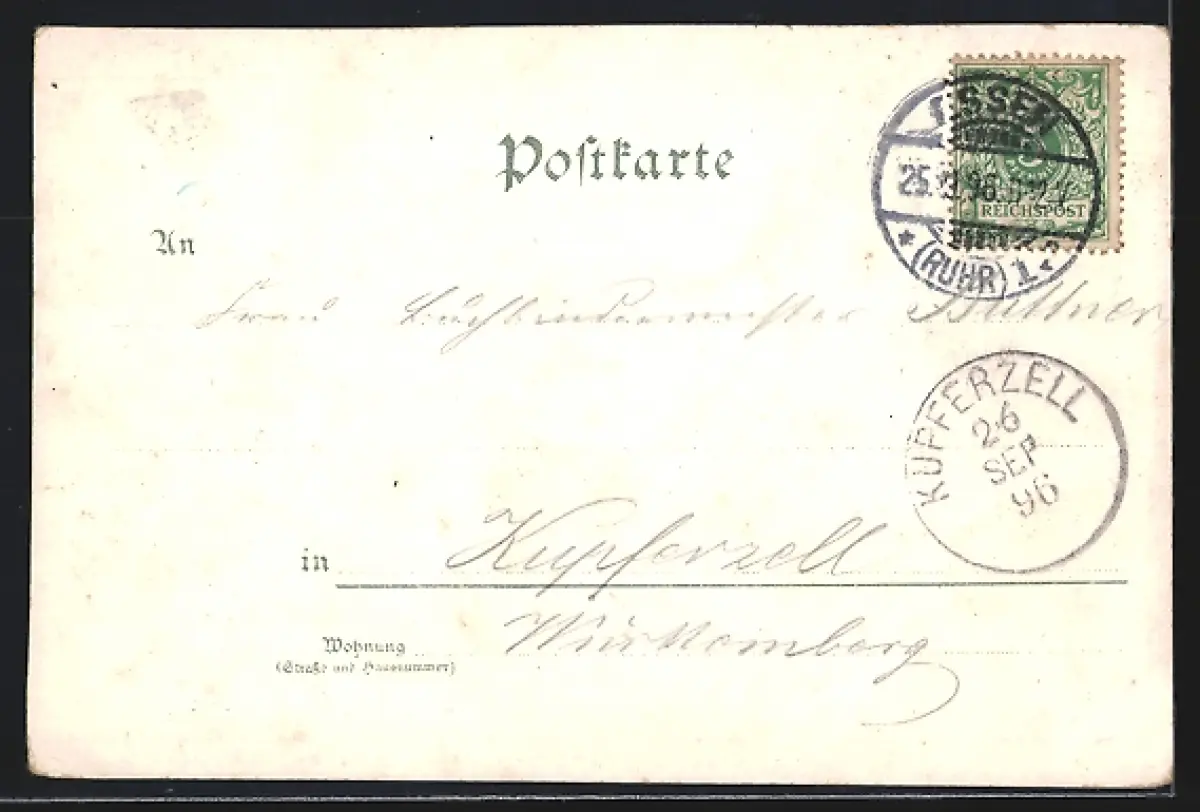 Postkarte
ESSEN
25. 9. 96.
REICHSPOST
(RUHR) 1
An
Frau Buchbindermeister Büttner
KUPFERZELL
26
SEP
96
in Kupferzell
Württemberg
Wohnung
(Straße und Hausnummer)